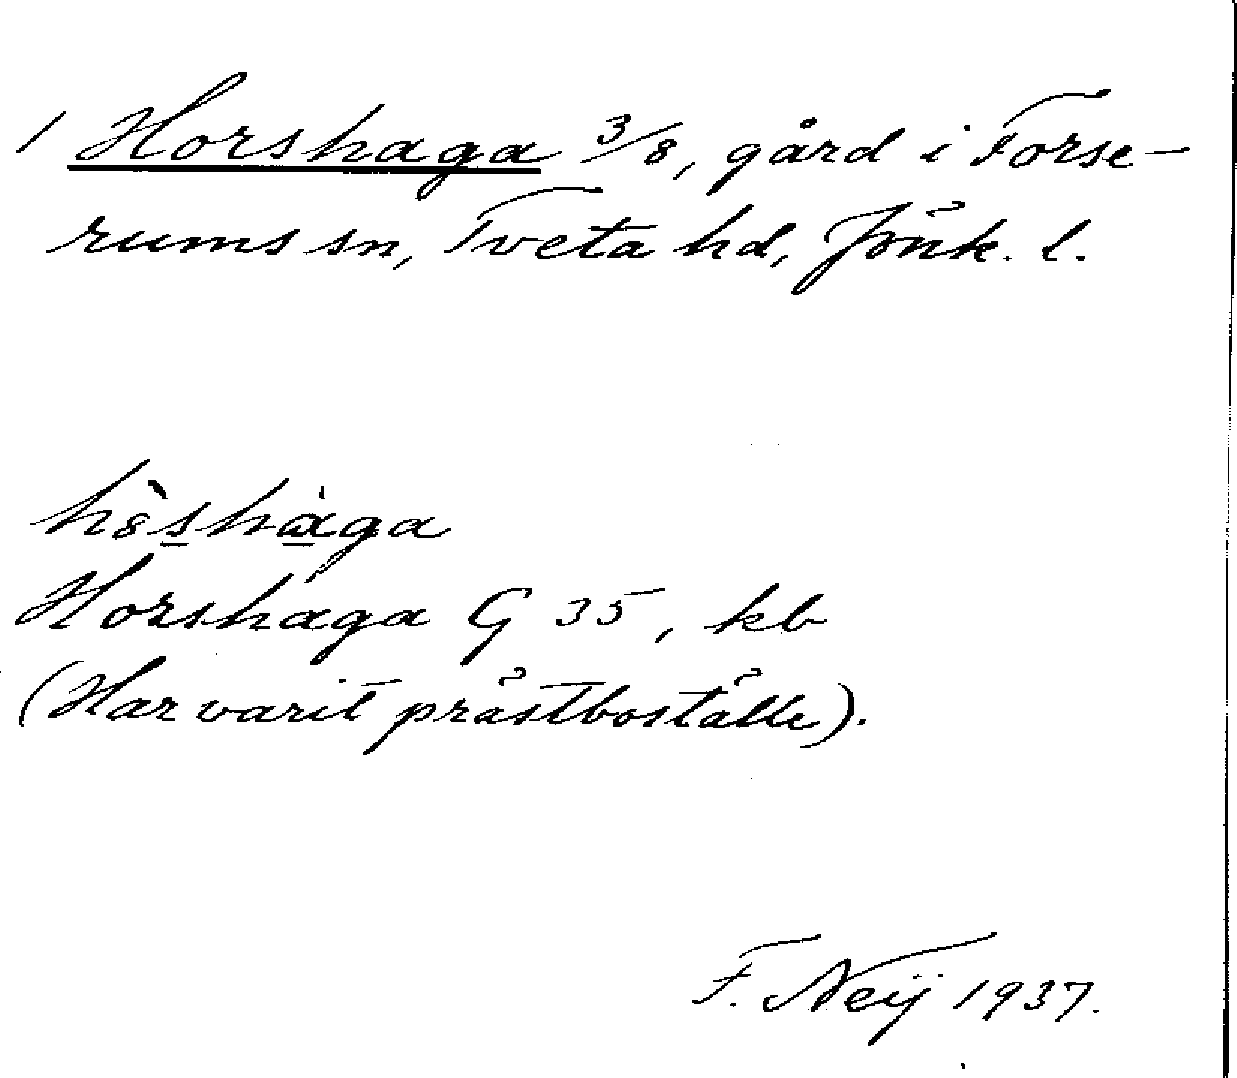 1 Horshaga 3/8, gård i Forse-
rums sn, Tveta hd, Jönk. l.
Horshaga G 35, kb
(Har varit prästboställe).
F. Neij 1937.